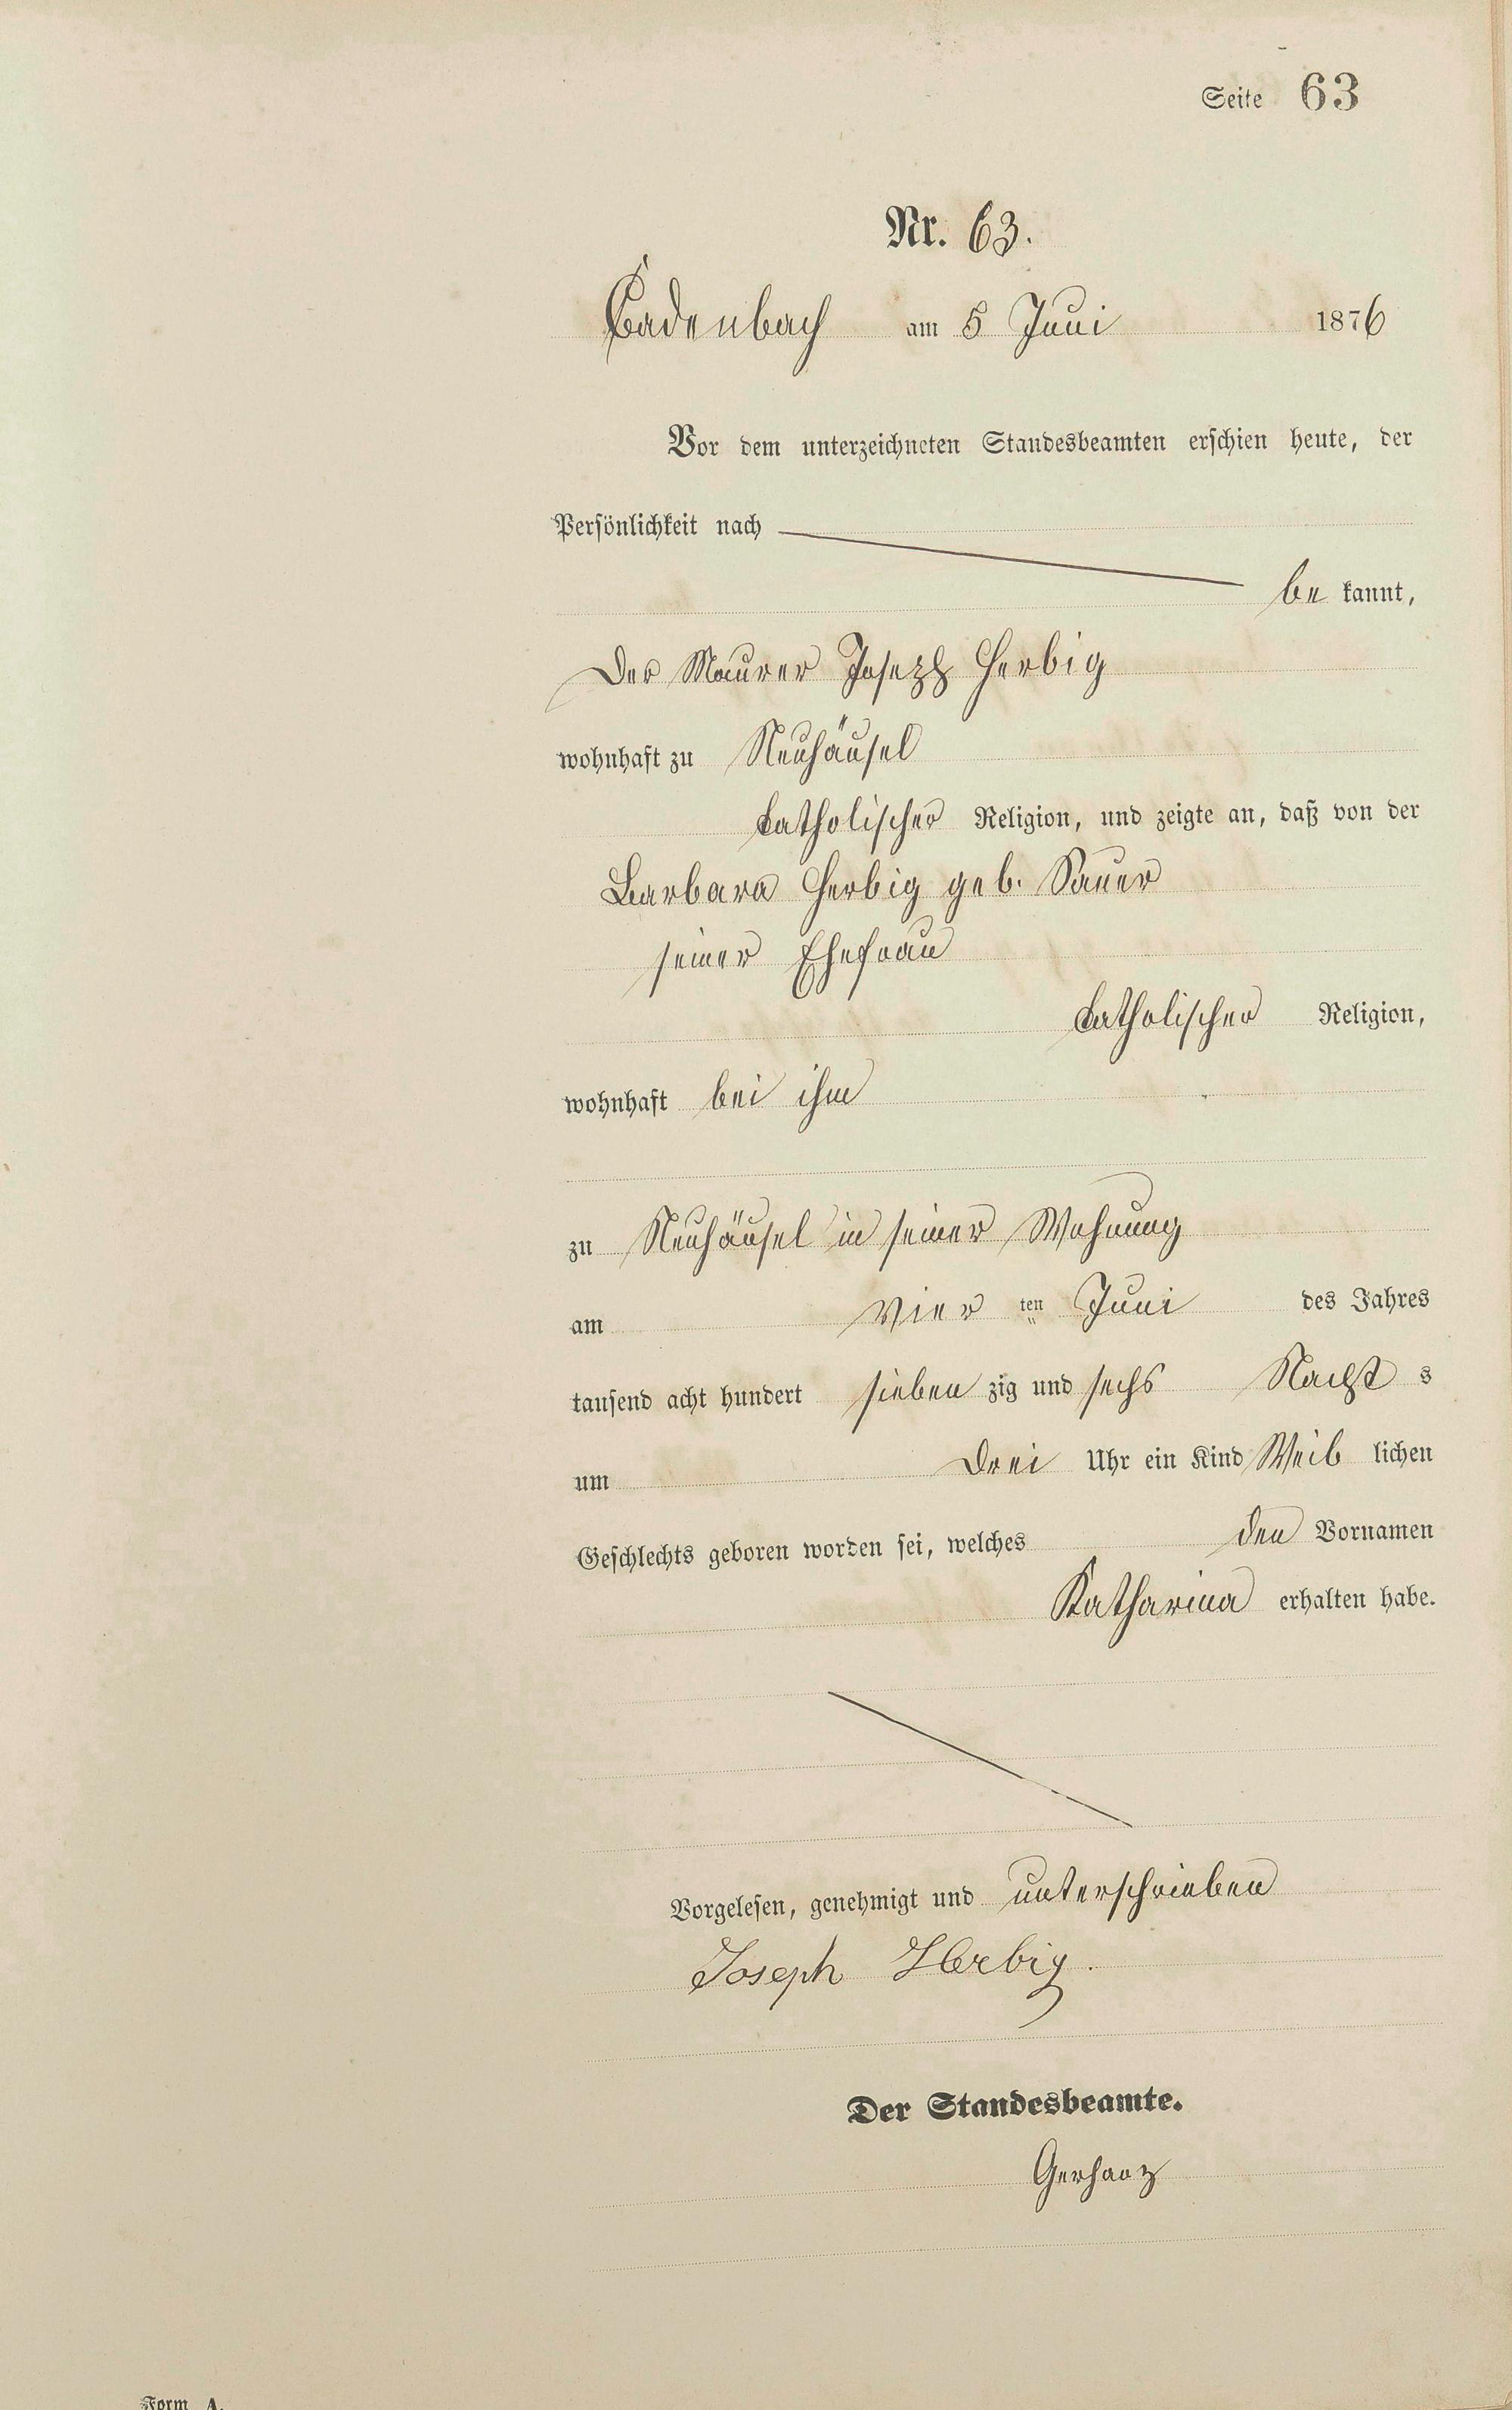 Seite 63
Nr. 63.
Cadenbach am 5 Juni 1876
Vor dem unterzeichneten Standesbeamten erschien heute, der
Persönlichkeit nach
be kannt,
Der Maurer Joseph Herbig
wohnhaft zu Neuhäusel
katholischer Religion, und zeigte an, daß von der
Barbara Herbig geb. Sauer
seiner Ehefrau
katholischer Religion,
wohnhaft bei ihm
zu Neuhäusel in seiner Wohnung
am vier ten Juni des Jahres
tausend acht hundert sieben zig und sechs Nacht s
um drei Uhr ein Kind Weib lichen
Geschlechts geboren worden sei, welches den Vornamen
Katharina erhalten habe.
Vorgelesen, genehmigt und unterschrieben
Joseph Herbig.
Der Standesbeamte.
Gerharz
Form A.